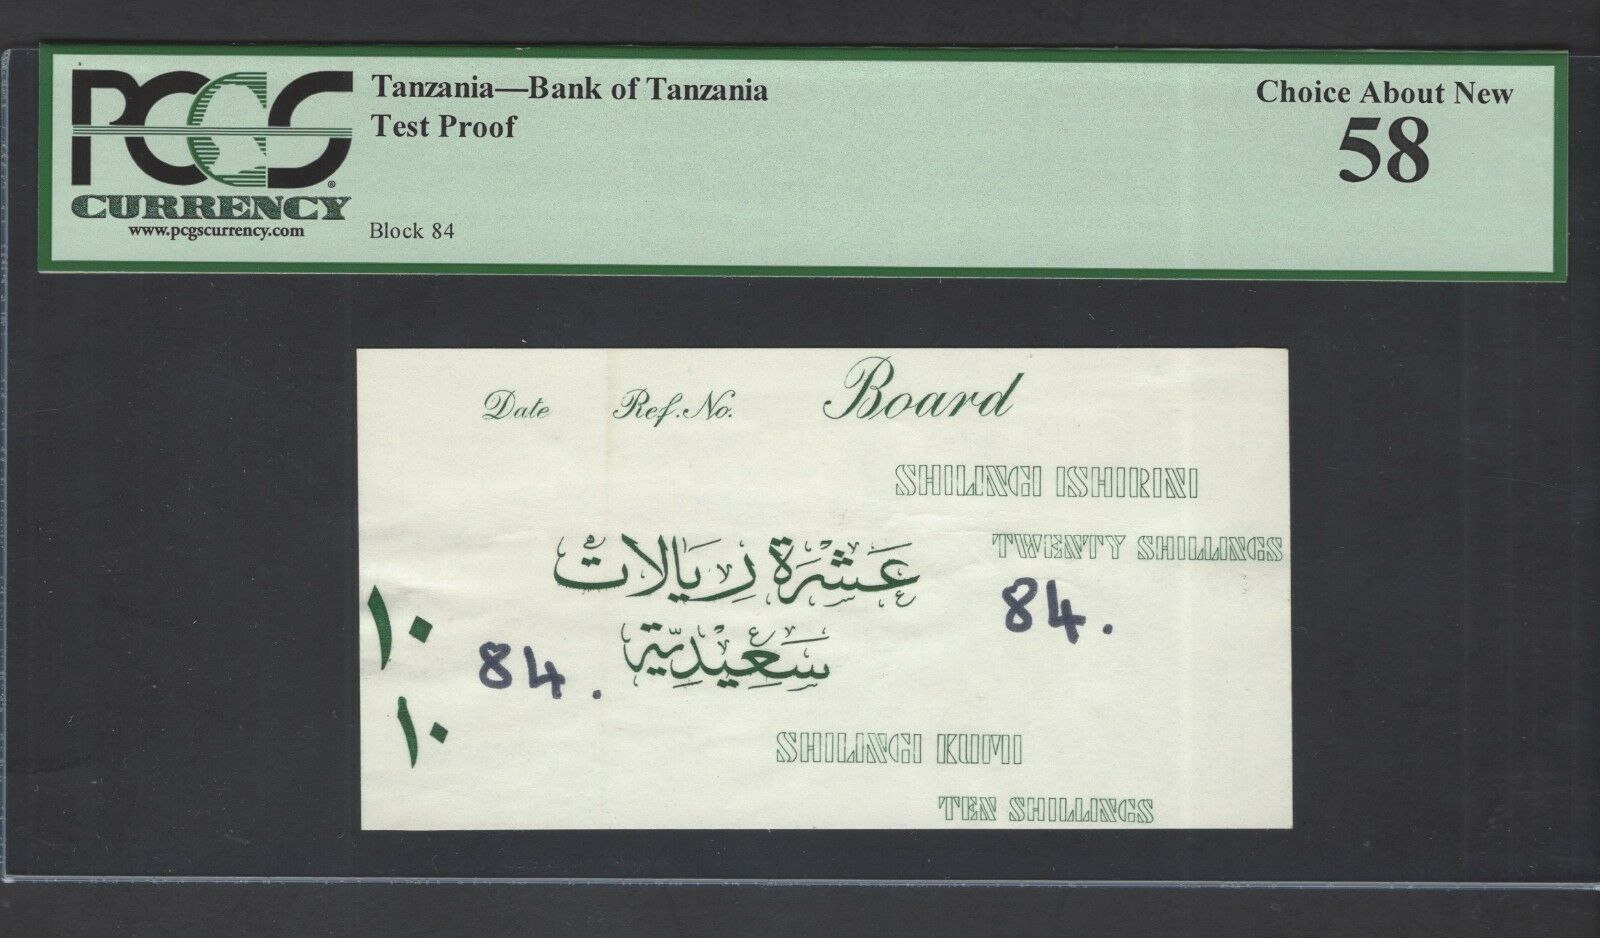 PCGS
CURRENCY
www.pcgscurrency.com
Tanzania—Bank of Tanzania
Test Proof
Block 84
Choice About New
58
Date Ref. No. Board
SHILINGI ISHIRINI
TWENTY SHILLINGS
عَشْرَة رِيَالَاتْ
84.
١٠
سَعِيْدِيَّة
84.
١٠
SHILINGI KUMI
TEN SHILLINGS